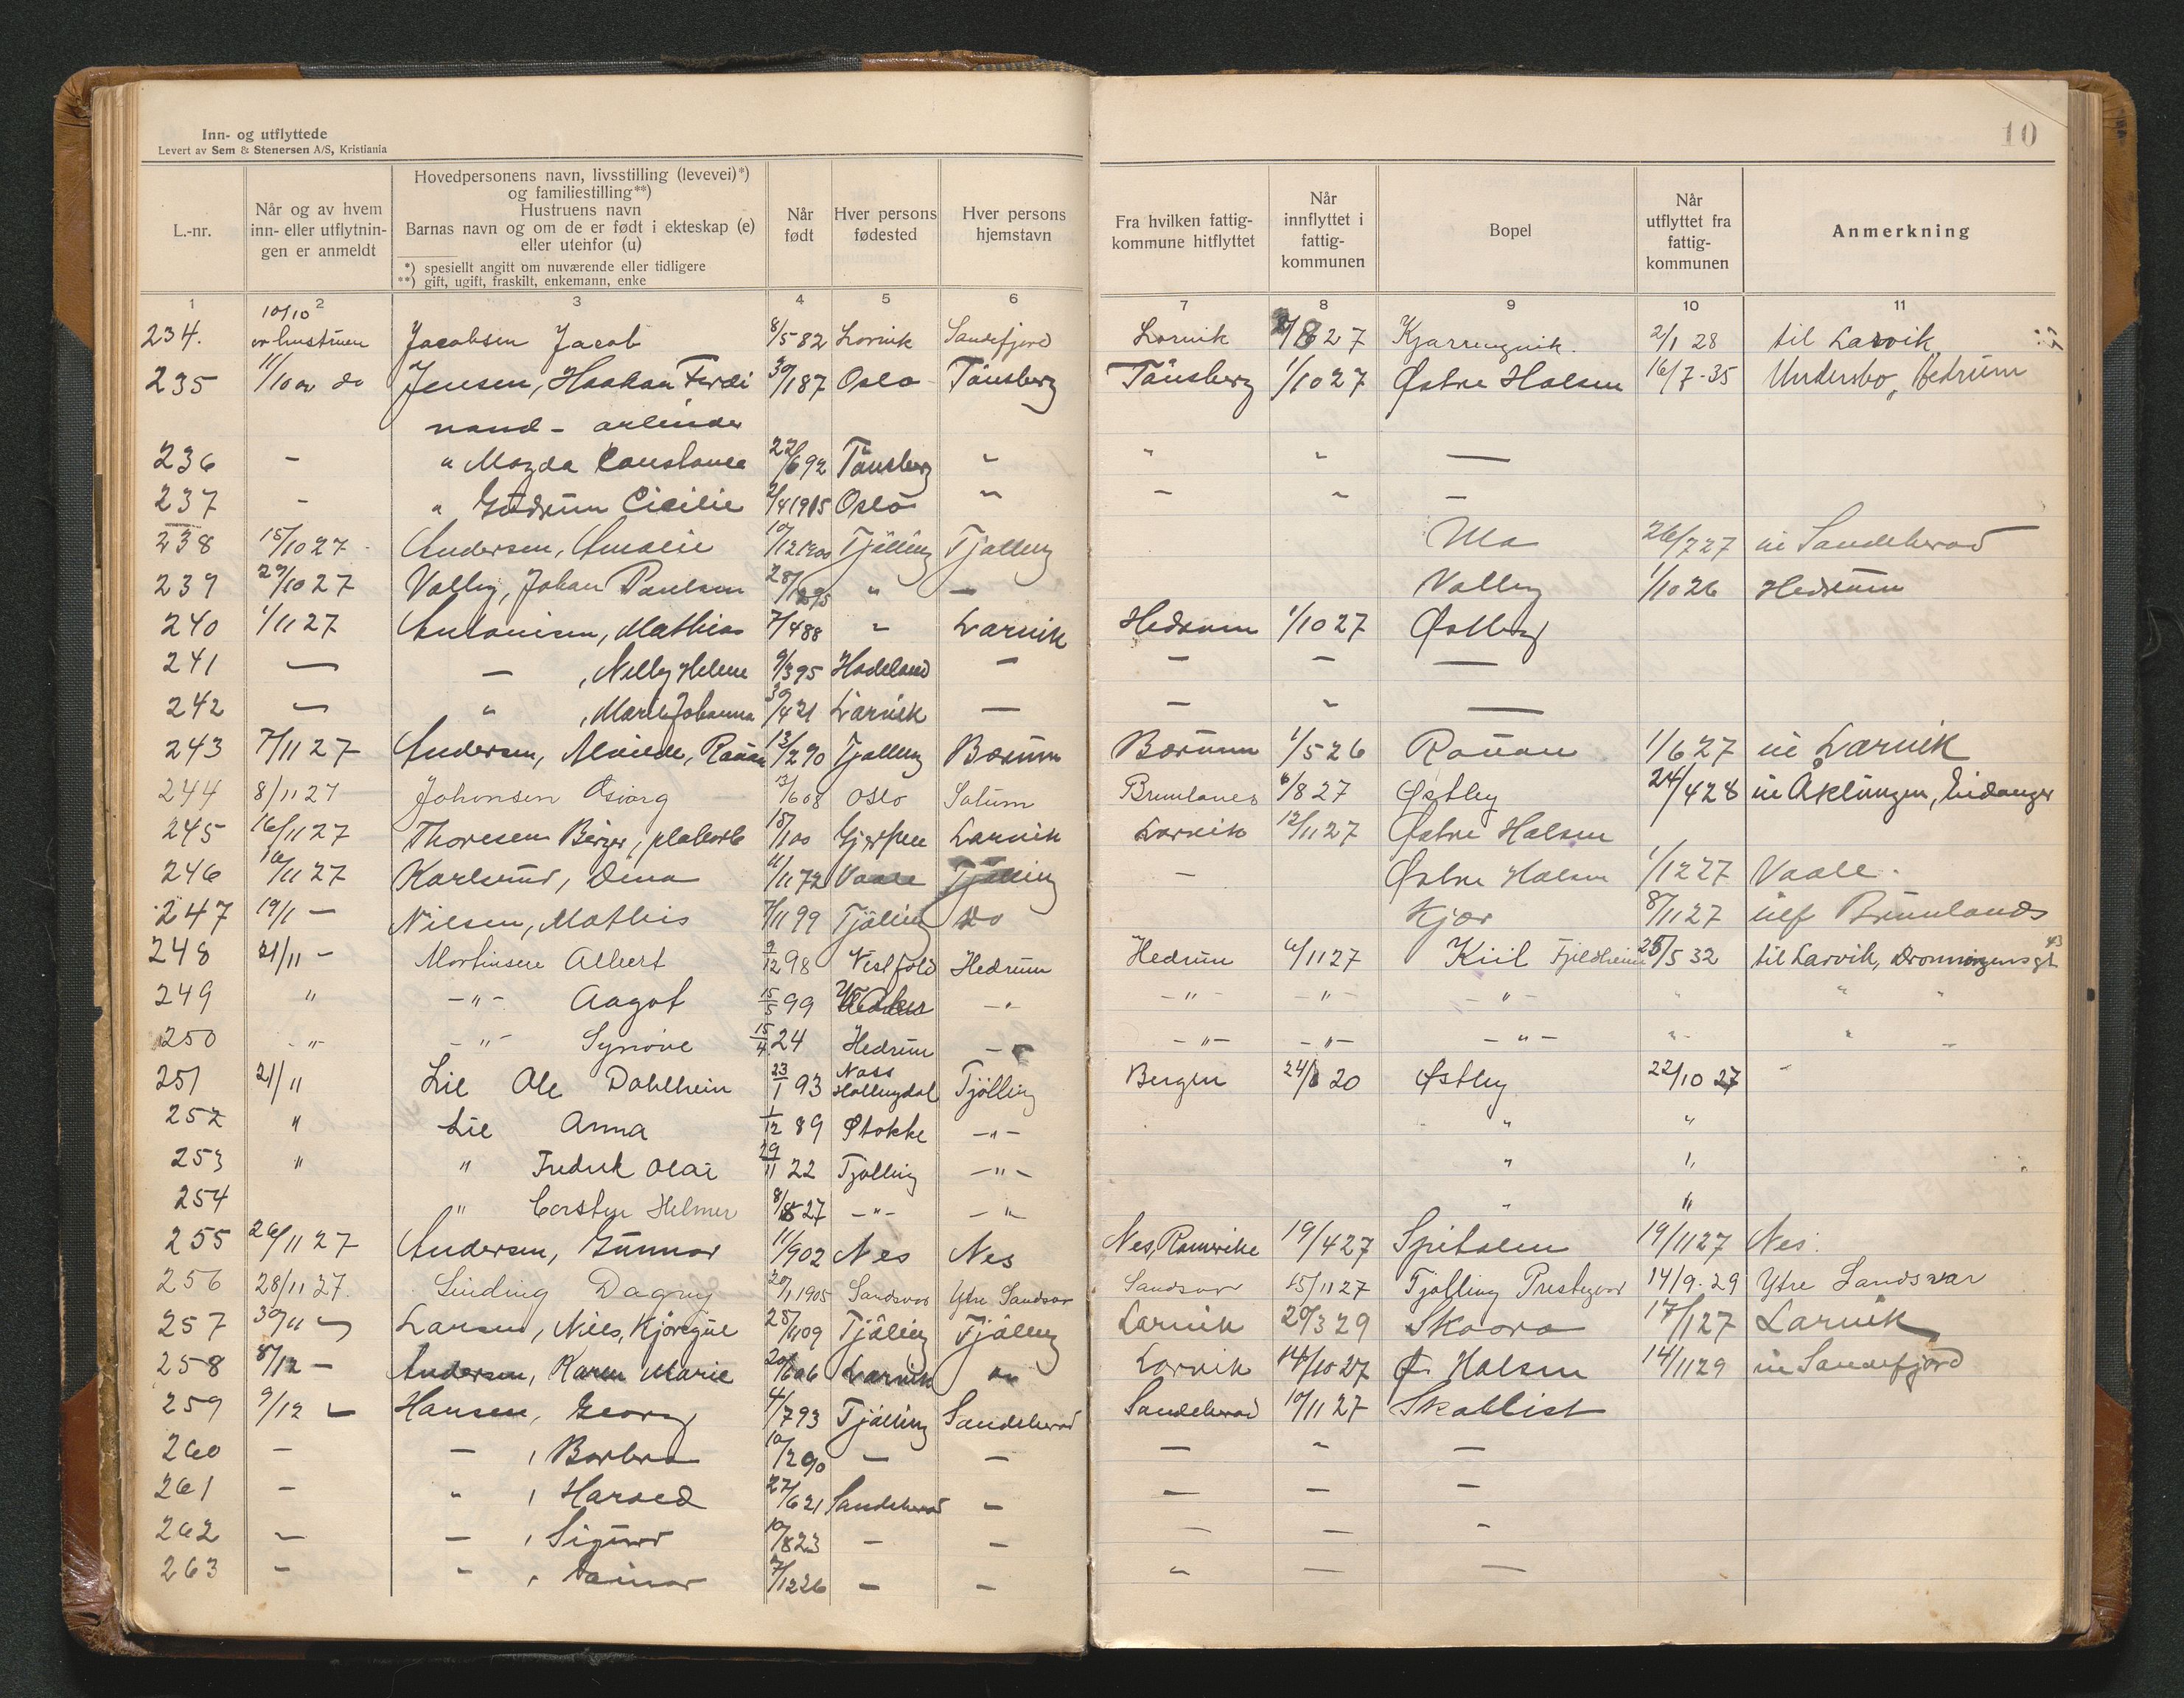 Inn- og utflyttede
Levert av Sem & Stenersen A/S, Kristiania
10
L.-nr.
Når og av hvem inn- eller utflytnin- gen er anmeldt
Hovedpersonens navn, livsstilling (levevei)*)
og familiestilling**)
Hustruens navn
Barnas navn og om de er født i ekteskap (e)
eller utenfor (u)
*) spesiellt angitt om nuværende eller tidligere
**) gift, ugift, fraskilt, enkemann, enke
Når født
Hver persons fødested
Hver persons hjemstavn
Fra hvilken fattig- kommune hitflyttet
Når innflyttet i fattig- kommunen
Bopel
Når utflyttet fra fattig- kommunen
Anmerkning
1 2 3 4 5 6 7 8 9 10 11
234. 10/10 av hustruen Jacobsen Jacob 8/5 82 Larvik Sandefjord Larvik 27 Kjærrengvik. 2/1 28 til Larvik
235 11/10 av do Jensen, Haakan Ferdi 30/1 87 Oslo Tönsberg Tönsberg 1/10 27 Østre Halsen 16/7-35 Undersbo, Hedrum
nand - arbeider
236 - " Magda Constance 22/6 92 Tönsberg " " " —
237 - " Gudrun Cicilie 2/4 1915 Oslo " - " -
238 15/10 27 Andersen, Amalie 10/12 1900 Tjölling Tjölling Ula 26/7 27 til Sandeherad
239 29/10 27 Valby, Johan Paulsen 28/1 1895 " - Valby 1/10 26 Hedrum
240 1/11 27 Antonisen, Mathias 7/4 88 " Larvik Hedrum 1/10 27 Østby
241 — — , Nelly Helene 9/3 95 Hadeland — — — —
242 — " , Marie Johanna 30/4 21 Larvik — — " —
243 7/11 27 Andersen, Alvilde, Rauan 13/2 90 Tjølling Bærum Bærum 1/5 26 Rauan 1/6 27 til Larvik
244 8/11 27 Johnsen Asvarg 13/6 08 Oslo Solum Brunlanes 6/8 27 Østby 24/4 28 til Åklungen, Eidanger
245 16/11 27 Thoresen Birger, 18/1 00 Gjerpen Larvik Larvik 12/11 27 Østre Halsen
246 10/11 27 Karlsrud, Dina 11/11 72 Vaale Tjølling - Østre Halsen 1/12 27 Vaale.
247 19/1 — Nilsen, Mathis 7/11 99 Tjölling Do Kjær 8/11 27 utf Brunlanes
248 21/11 - Martinsen Albert 9/12 98 Vestfold Hedrum Hedrum 6/11 27 Kiil Fjeldheim 25/5 32 til Larvik, Dronningensgt 43
249 " -"- Aagot 15/5 99 -" -"- -"- -"- " " "
250 -"- -"- Synnöve 15/4 24 Hedrum - -"- -"- -"- "- "
251 21/11 Lie Ole Dahlhein 23/1 93 Nass Hallingdal Tjölling Bergen 20 Østby 22/10 27 "
252 " Lie Anna 1/12 89 Stokke -"- " "
253 " " Fredrik Olai 29/11 22 Tjølling -"- " "
254 " Carsten Helmer 8/8 27 -"- -"- " "
255 26/11 27 Andersen, Gunnar 11/9 02 Nes Nes Nes, Romerike 19/4 27 Spitalen 19/11 27 Nes.
256 28/11 27. Sinding Dagny 20/1 1905 Sandsvær Ytre Sandsvær Sandsvær 15/11 27 Tjølling Prestegaard 14/9-29 Ytre Sandsvær
257 30/11 — Larsen, Nils, 25/11 09 Tjölling Tjölling Larvik 20/3 29 Skaara 17/1 27 Larvik
258 8/12 - Andersen, Karen Marie 20/6 06 Larvik Larvik 14/10 27 Ø. Halsen 14/11 29 til Sandefjord
259 9/12 — Hansen, Georg 4/7 93 Tjölling Sandeherad Sandeherad 10/11 27 Skallist
260 — — , Borbra 10/2 90 — — — " —
261 - " , Harald 27/6 21 Sandeherad - - - -
262 - - , Sigurd 10/8 23 - - - - -
263 - " , 7/12 26 - - " - -